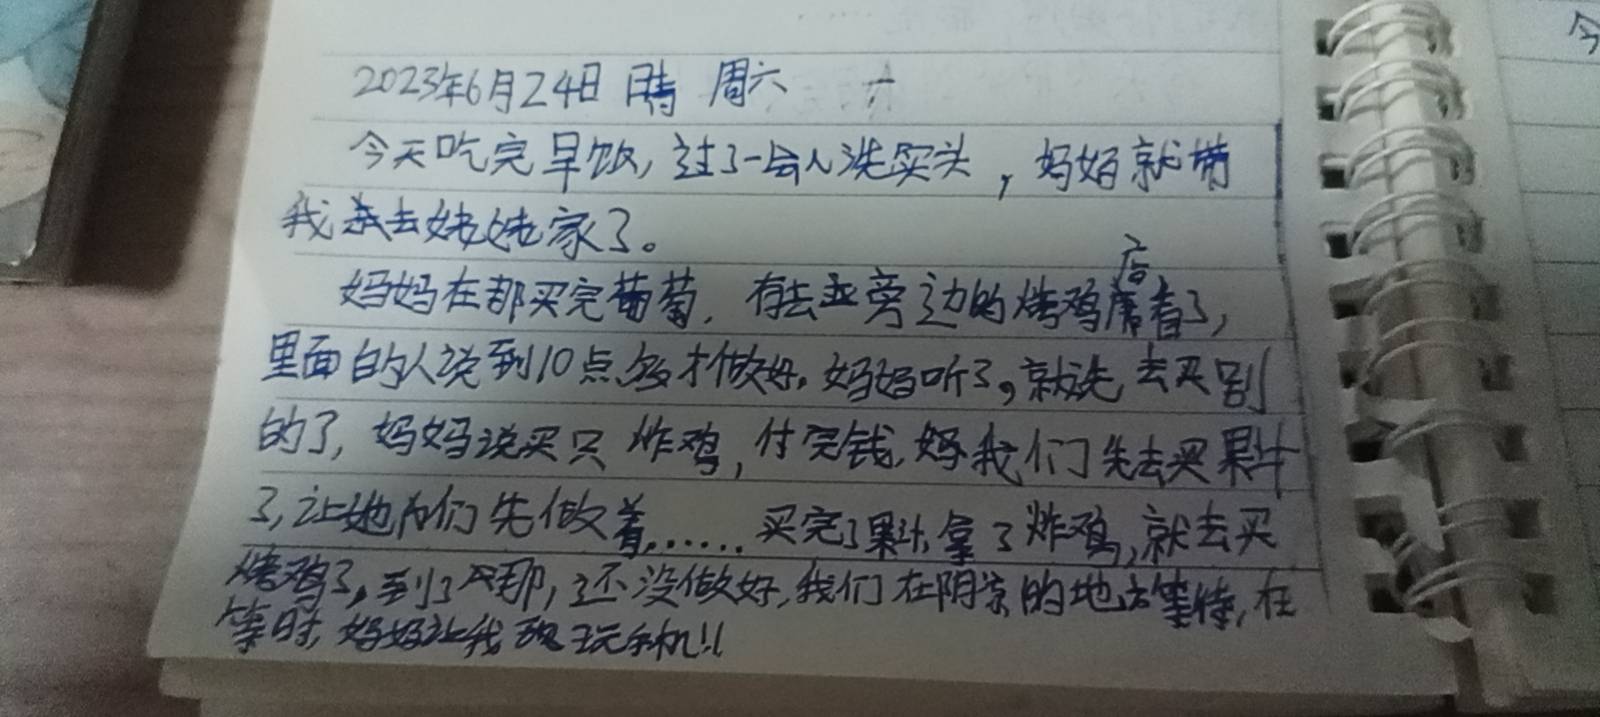 2023年6月24日 晴 周六
今天吃完早饭,过了一会儿洗完头,妈妈就带
我去姥姥家了。
妈妈在那买完葡萄,有去旁边的烤鸡店看了,
里面的人说到10点多才做好,妈妈听了,就先去买别
的了,妈妈说买只炸鸡,付完钱,我们先去买果汁
了,让她们先做着……买完了果汁,拿了炸鸡,就去买
烤鸡了,到了那,还没做好,我们在阴凉的地方等待,在
等时,妈妈让我玩手机!!
今